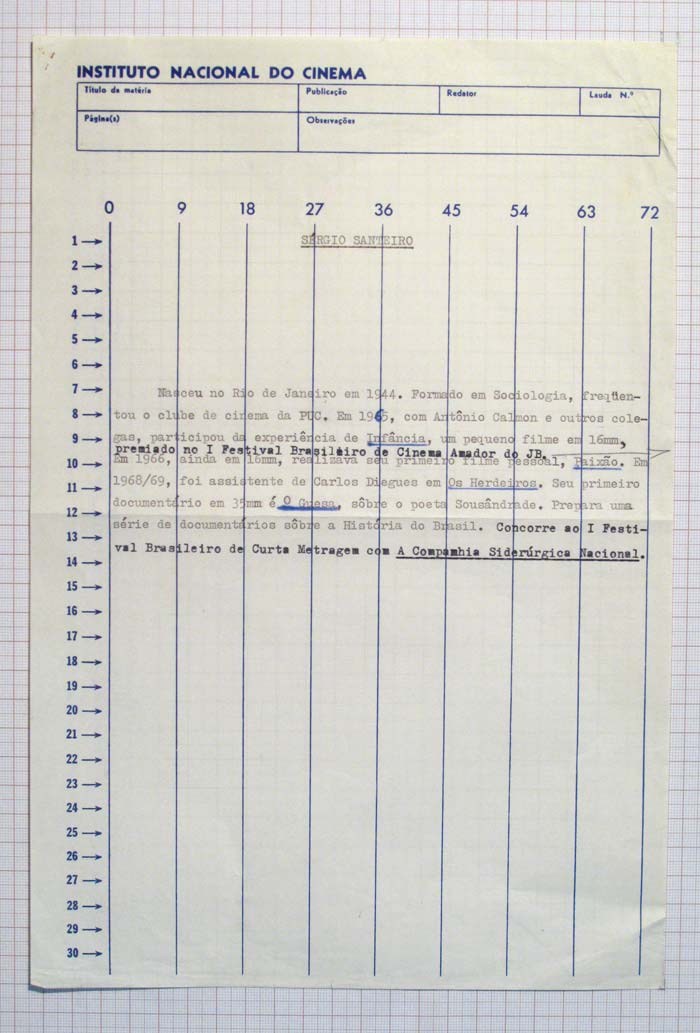 INSTITUTO NACIONAL DO CINEMA
Título da matéria Publicação Redator Lauda N.º
Página(s) Observações
0 9 18 27 36 45 54 63 72
1 SÉRGIO SANTEIRO
2
3
4
5
6
7 Nasceu no Rio de Janeiro em 1944. Formado em Sociologia, freqüen-
8 tou o clube de cinema da PUC. Em 1965, com Antônio Calmon e outros cole-
9 gas, participou da experiência de Infância, um pequeno filme em 16mm,
premiado no I Festival Brasileiro de Cinema Amador do JB.
10 Em 1966, ainda em 16mm, realizava seu primeiro filme pessoal, Paixão. Em
11 1968/69, foi assistente de Carlos Diegues em Os Herdeiros. Seu primeiro
12 documentário em 35mm é O Guesa, sôbre o poeta Sousândrade. Prepara uma
13 série de documentários sôbre a História do Brasil. Concorre ao I Festi-
14 val Brasileiro de Curta Metragem com A Companhia Siderúrgica Nacional.
15
16
17
18
19
20
21
22
23
24
25
26
27
28
29
30